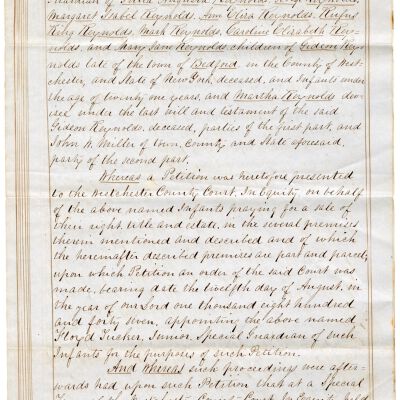 Guardian of Julia Augusta Reynolds,
Margaret Isabel Reynolds, Ann Eliza Reynolds, Rufus
King Reynolds, Mark Reynolds, Caroline Elizabeth Rey-
nolds, and Mary Jane Reynolds children of Gideon Rey-
nolds late of the town of Bedford, in the County of West-
chester, and State of New York, deceased, and Infants under
the age of twenty one years, and Martha Reynolds de-
visee under the last will and testament of the said
Gideon Reynolds, deceased, parties of the first part, and
John W. Miller of town, County and State aforesaid,
party of the second part,
Whereas a Petition was heretofore presented
to the Westchester County Court, In Equity, on behalf
of the above named Infants praying for a sale of
their right, title and estate, in the several premises
therein mentioned and described and of which
the hereinafter described premises are part and parcel,
upon which Petition an order of the said Court was
made, bearing date the twelfth day of August, in
the year of our Lord one thousand eight hundred
and forty seven, appointing the above named
Floyd Tucker, Junior, Special Guardian of such
Infants for the purposes of such Petition.
And Whereas such proceedings were after-
wards had upon such Petition that at a Special
Term of the Westchester County Court In Equity held